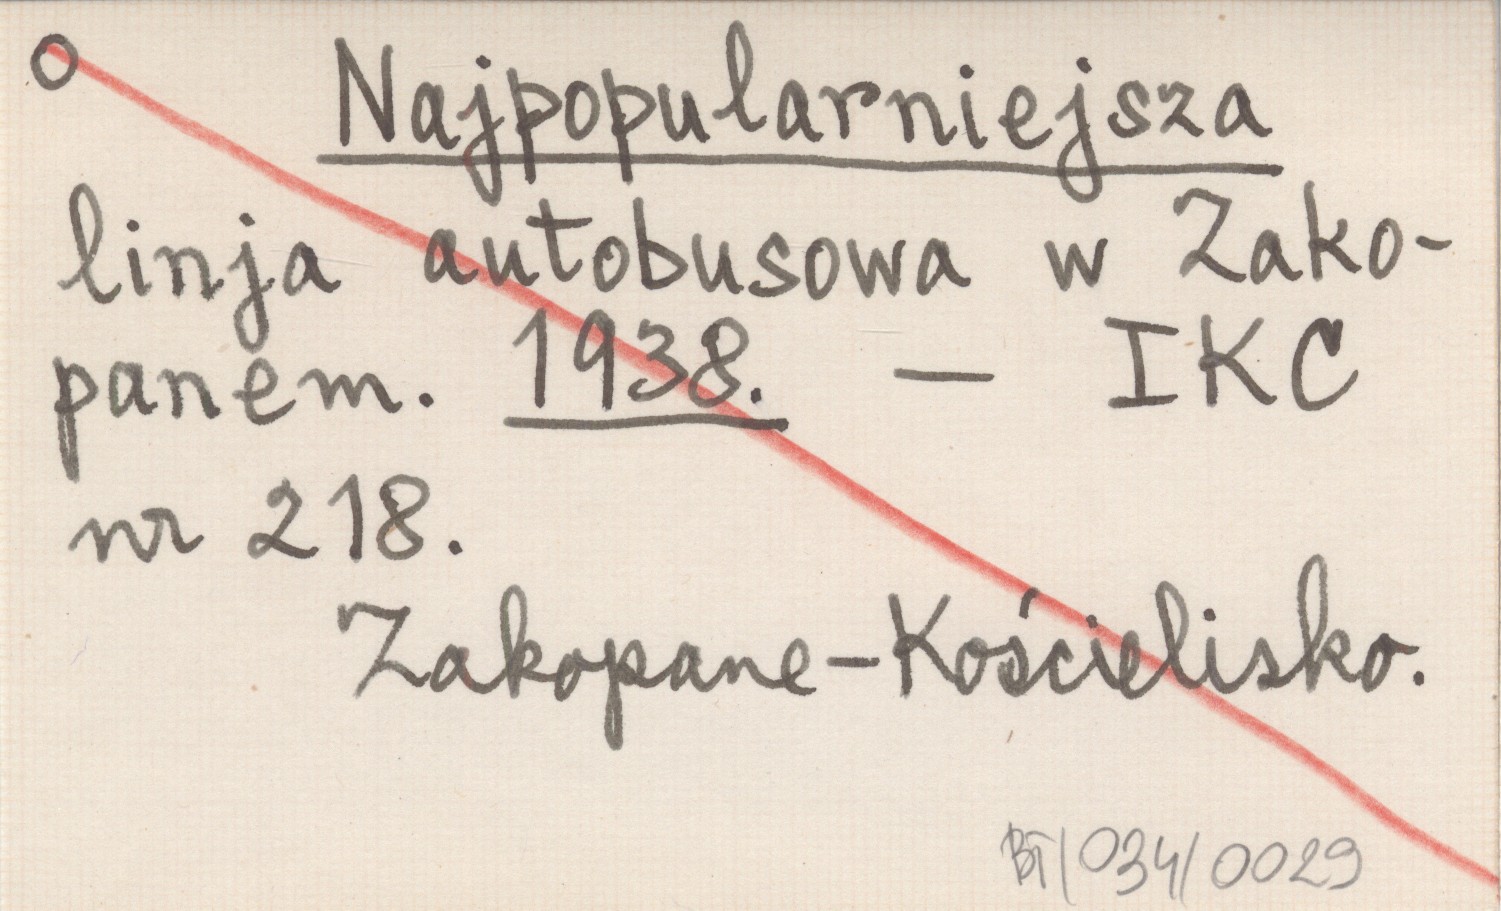 Najpopularniejsza
linja autobusowa w Zako-
panem. 1938. — IKC
nr 218.
Zakopane-Kościelisko.
BT/034/0029